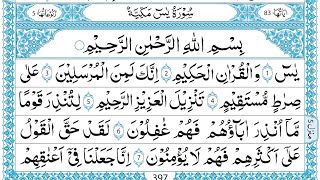 اٰيَاتُهَا 83 سُوْرَةُ يٰسٓ مَكِّيَّةٌ رُكُوْعَاتُهَا 5
بِسْمِ اللّٰهِ الرَّحْمٰنِ الرَّحِيْمِ
يٰسٓ ۝1 وَالْقُرْاٰنِ الْحَكِيْمِ ۝2 اِنَّكَ لَمِنَ الْمُرْسَلِيْنَ ۝3 عَلٰى
صِرَاطٍ مُّسْتَقِيْمٍ ۝4 تَنْزِيْلَ الْعَزِيْزِ الرَّحِيْمِ ۝5 لِتُنْذِرَ قَوْمًا
مَّاۤ اُنْذِرَ اٰبَآؤُهُمْ فَهُمْ غٰفِلُوْنَ ۝6 لَقَدْ حَقَّ الْقَوْلُ
عَلٰۤى اَكْثَرِهِمْ فَهُمْ لَا يُؤْمِنُوْنَ ۝7 اِنَّا جَعَلْنَا فِيْۤ اَعْنَاقِهِمْ
397